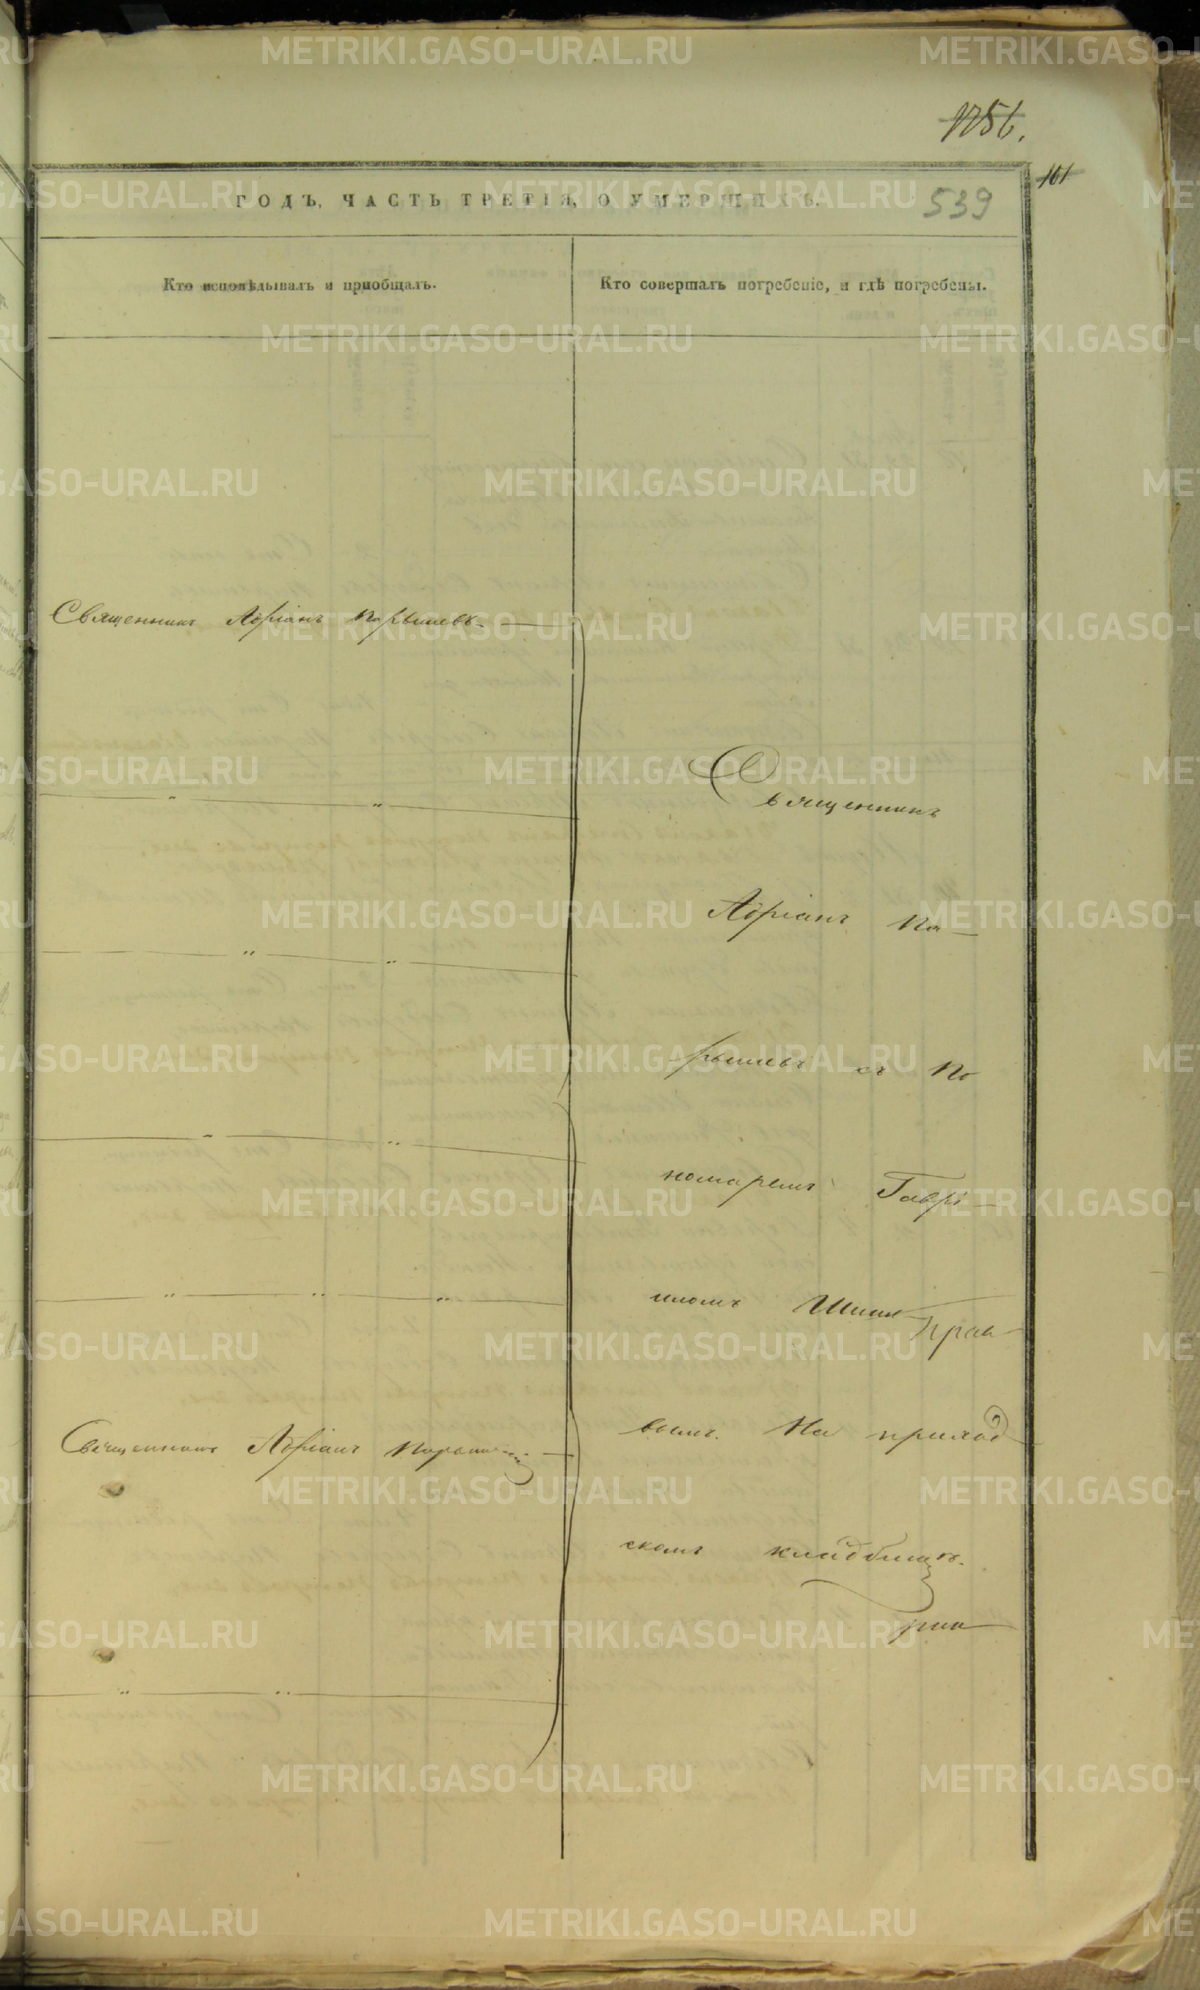 1256.
101
ГОДЪ, ЧАСТЬ ТРЕТІЯ, О УМЕРШИХЪ.
539
Кто исповѣдывалъ и пріобщалъ.
Кто совершалъ погребеніе, и гдѣ погребены.
Священникъ Адріанъ Парышевъ.
Священникъ
Адріанъ Па-
рышевъ съ По
номаремъ Гаврі-
иломъ
вымъ. На приход
скомъ кладбищѣ.
Священникъ Адріанъ
METRIKI.GASO-URAL.RU